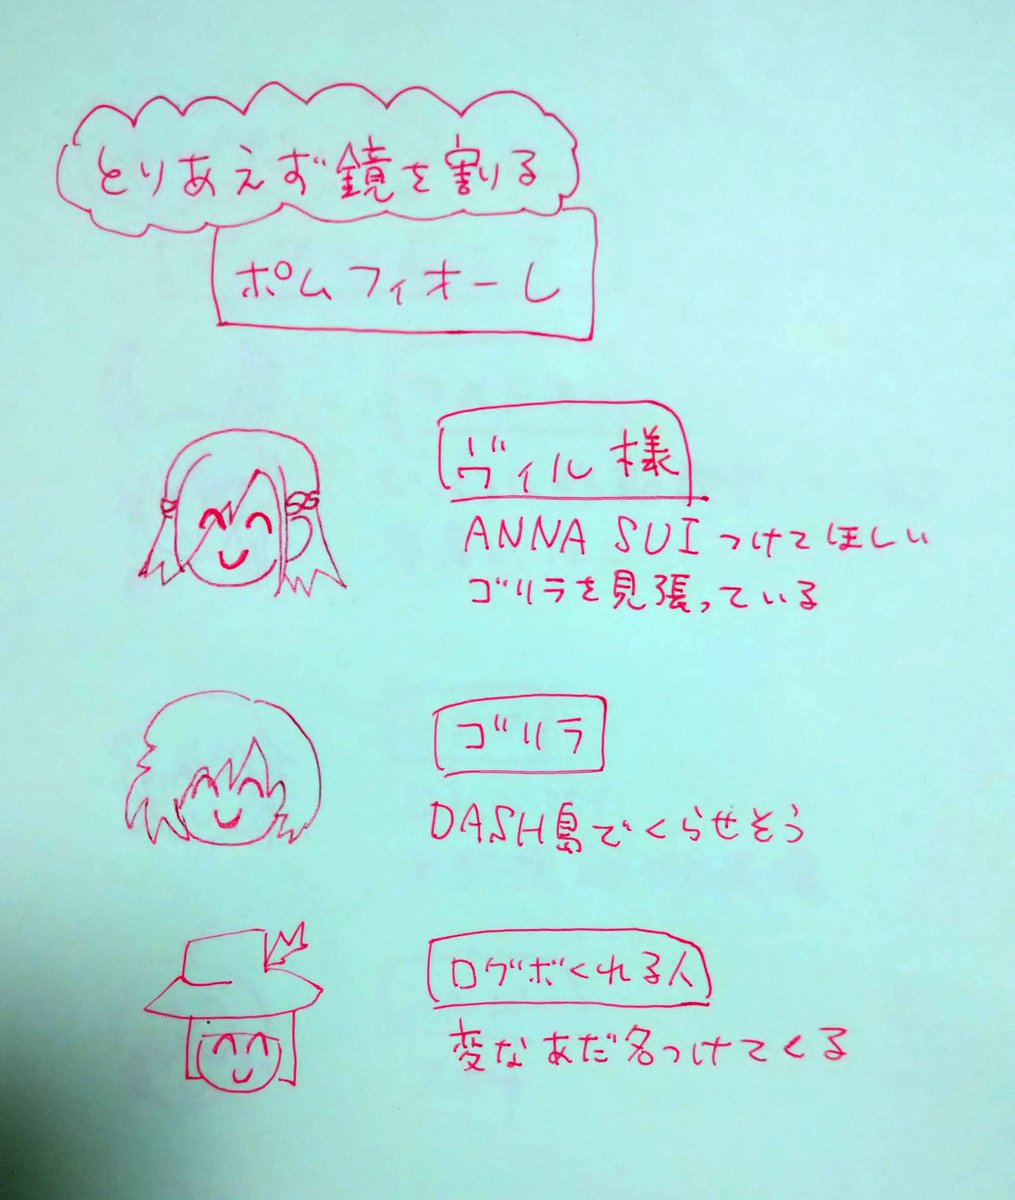 とりあえず鏡を割る
ポムフィオーレ
ヴィル様
ANNA SUIつけてほしい
ゴリラを見張っている
ゴリラ
DASH島でくらせそう
ログボくれる人
変なあだ名つけてくる